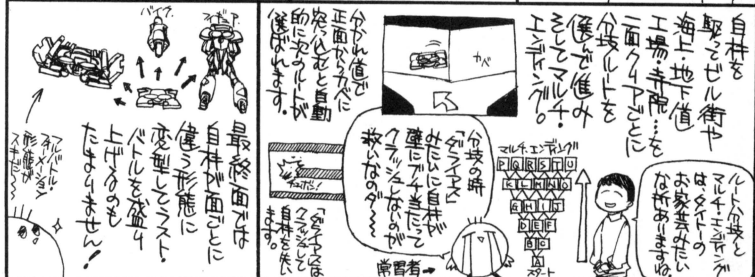 自機を
駆ってビル街や
海上・地下道
工場・寺院…を
一面クリアごとに
分岐ルートを
選んで進み
そしてマルチ・
エンディング。
カベ
分かれ道で
正面からカベに
突っ込むと自動
的に次のルートが
選ばれます。
ルート分岐と
マルチ・エンディング
は、タイトーの
お家芸みたい
な所ありますね。
マルチ・エンディング
P Q R S T U
K L M N O
G H I J
D E F
B C
A
スタート
分岐の時
「ダライアス」
みたいに自機が
壁にブチ当たって
クラッシュしないのが
救いなのダ〜〜
常習者→
「ダライアス」は
クラッシュして
自機を失い
ます。
フィギュア
バイク
最終面では
自機が面ごとに
違う形態に
変型してラスト・
バトルを盛り
上げるのも
たまりません!
フルバトル・
形態が